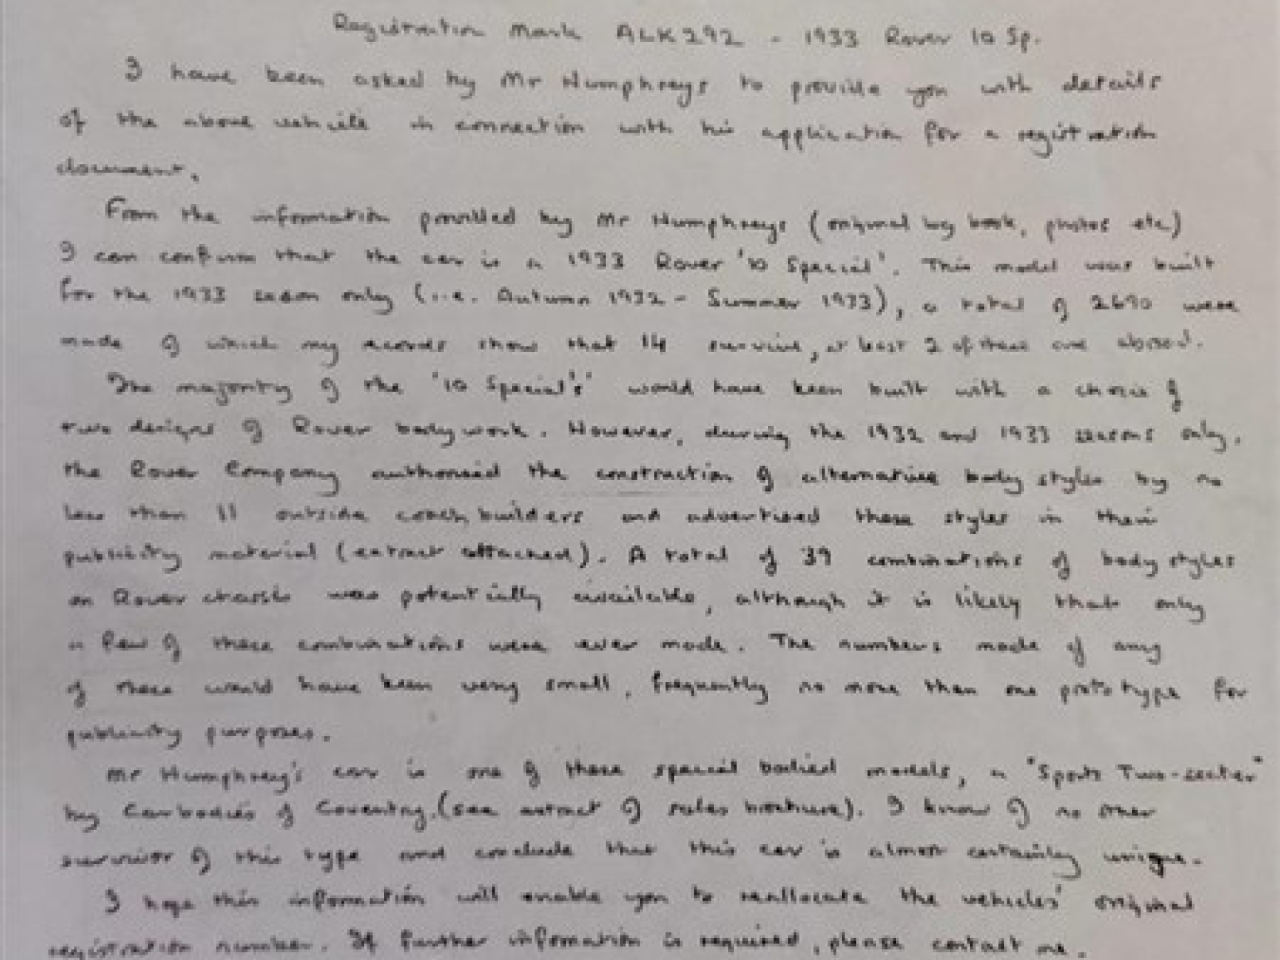 Registration Mark ALK292 - 1933 Rover 10 Sp.
I have been asked by Mr Humphreys to provide you with details
of the above vehicle in connection with his application for a registration
document.
From the information provided by Mr Humphreys (original log book, photos etc)
I can confirm that the car is a 1933 Rover '10 Special'. This model was built
for the 1933 season only (i.e. Autumn 1932 - Summer 1933), a total of 2690 were
made of which my records show that 14 survive, at least 2 of these are abroad.
The majority of the '10 Special's' would have been built with a choice of
two designs of Rover bodywork. However, during the 1932 and 1933 seasons only,
the Rover Company authorised the construction of alternative body styles by no
less than 11 outside coachbuilders and advertised these styles in their
publicity material (extract attached). A total of 39 combinations of body styles
on Rover chassis was potentially available, although it is likely that only
a few of these combinations were ever made. The numbers made of any
of these would have been very small, frequently no more than one prototype for
publicity purposes.
Mr Humphrey's car is one of these special bodied models, a "Sports Two-seater"
by Carbodies of Coventry. (see extract of sales brochure). I know of no other
survivor of this type and conclude that this car is almost certainly unique.
I hope this information will enable you to reallocate the vehicles' original
registration number. If further infomation is required, please contact me.